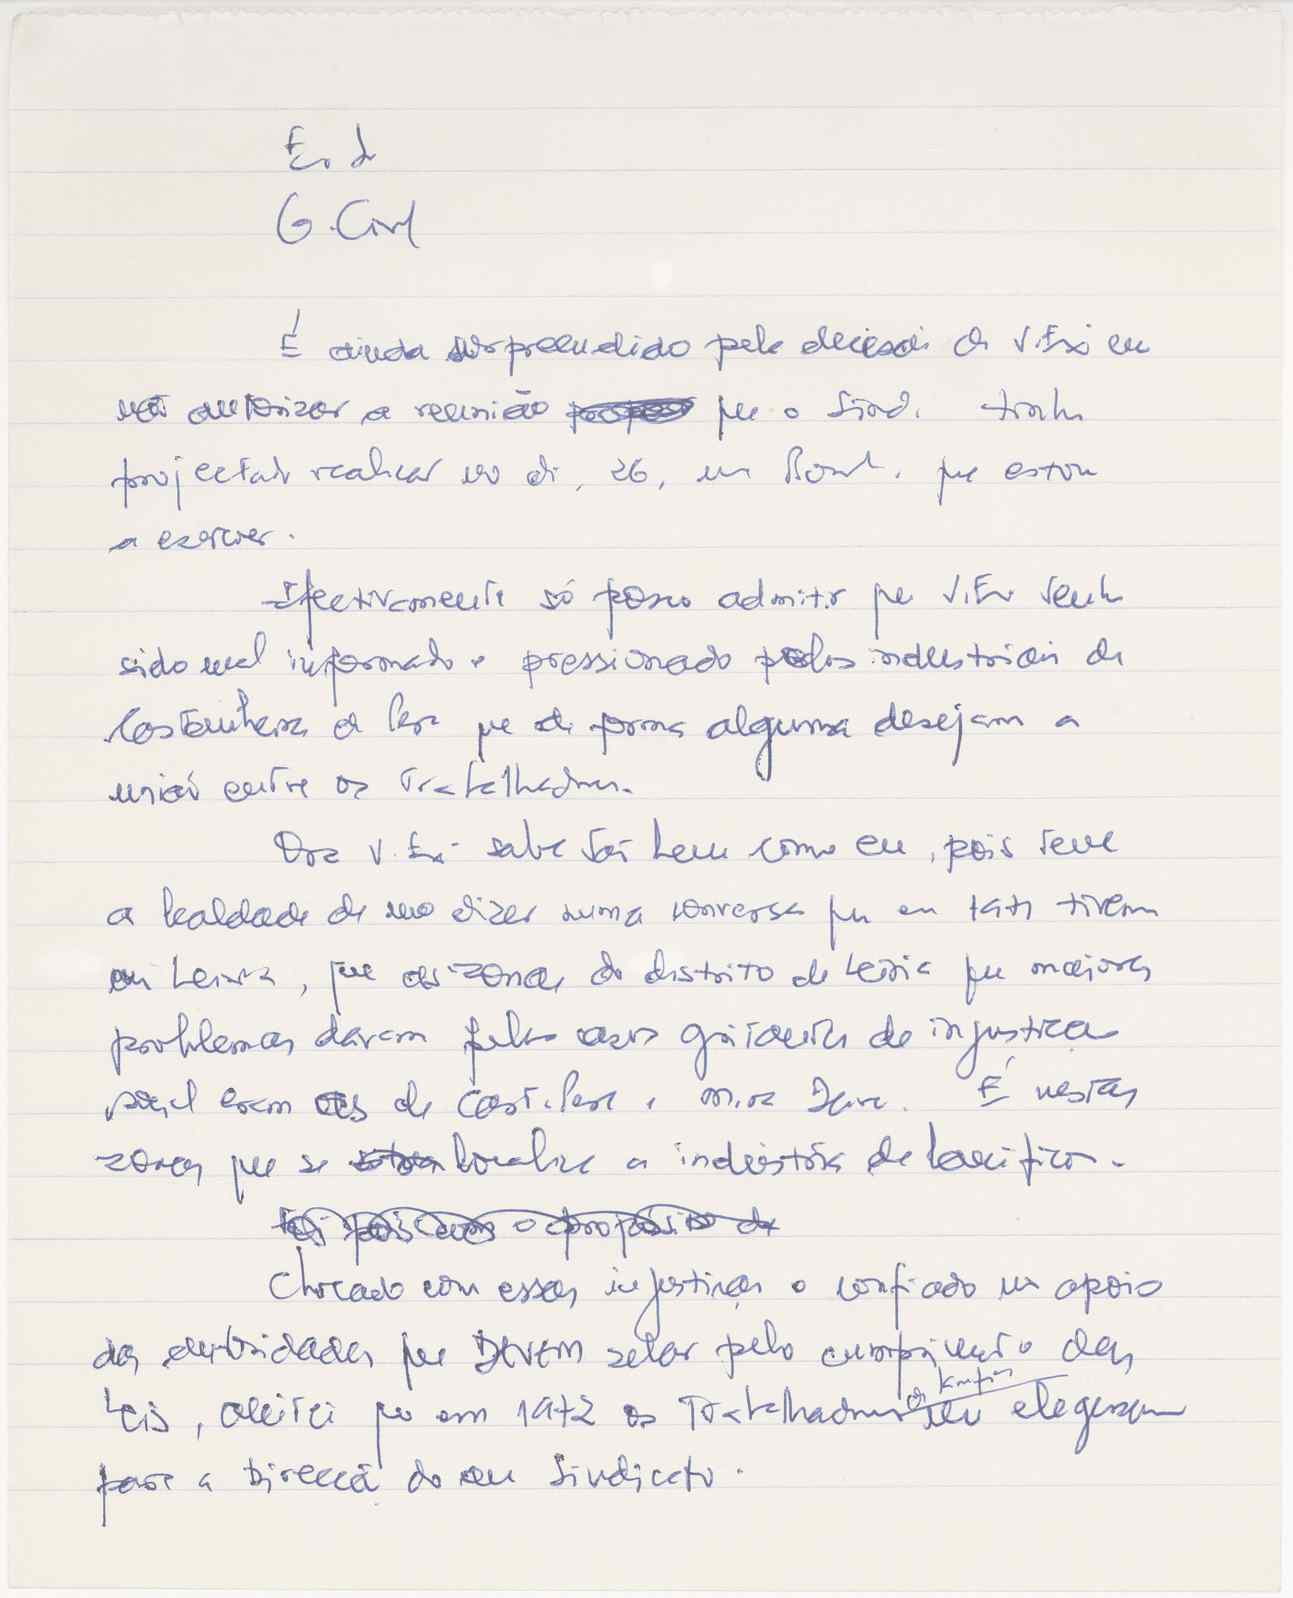 G. Civil
É ainda surpreendido pela decisão de V. Exª em
não autorizar a reunião que o Sind. tinha
projectado realizar no di, 26, em que estou
a exercer.
Efectivamente só posso admitir que V. Exª tenha
sido mal informado e pressionado pelos industriais de
Castanheira de Pera que de forma alguma desejam a
união entre os Trabalhadores.
Ora V. Exª sabe tão bem como eu, pois teve
a lealdade de mo dizer numa conversa que em 1971 tivemos
em Leiria, que as zonas do distrito de Leiria que maiores
problemas davam pelos casos gritantes de injustiça
social eram as de Cast. Pera e Mira Daire. É nestas
zonas que se localiza a indústria de lanifícios.
Foi pois com o propósito de
Chocado com essas injustiças e confiado no apoio
das autoridades que DEVEM zelar pelo cumprimento das
Leis, aceitei que em 1972 os Trabalhadores de lanifícios me elegessem
para a Direcção do seu Sindicato.